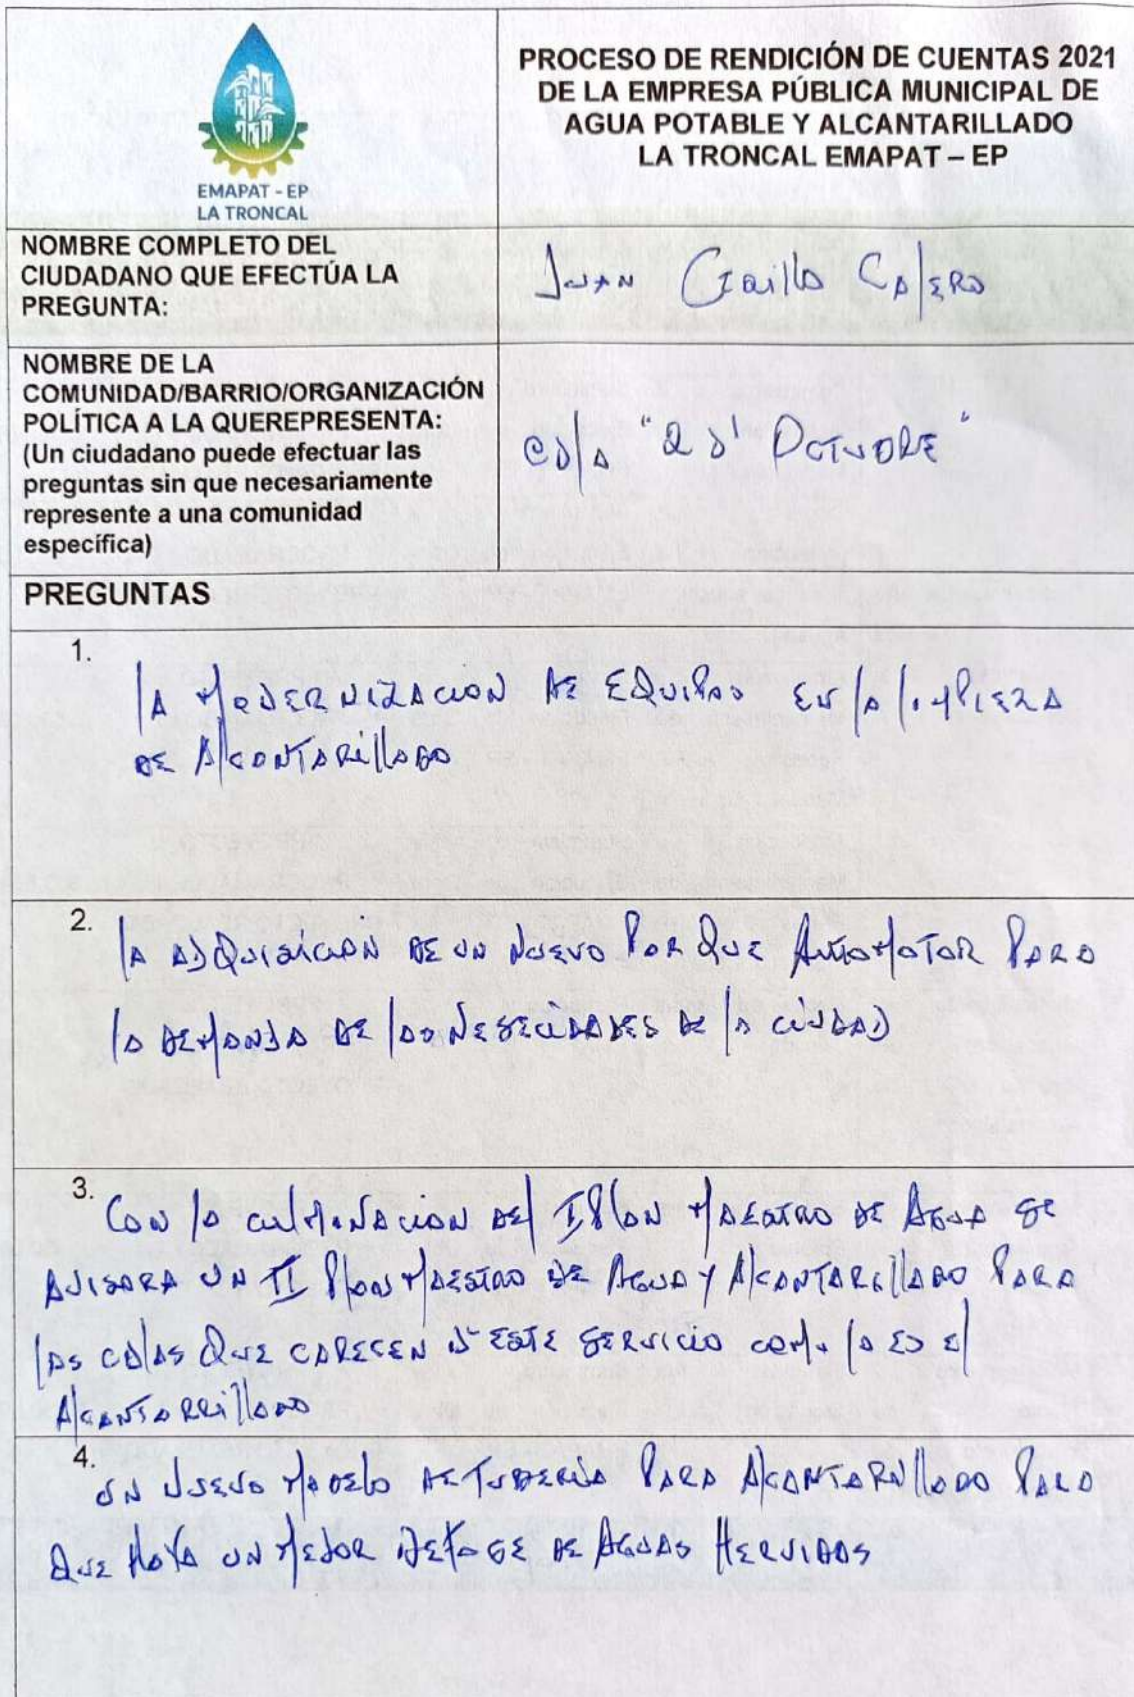 EMAPAT - EP
LA TRONCAL
PROCESO DE RENDICIÓN DE CUENTAS 2021
DE LA EMPRESA PÚBLICA MUNICIPAL DE
AGUA POTABLE Y ALCANTARILLADO
LA TRONCAL EMAPAT – EP
NOMBRE COMPLETO DEL
CIUDADANO QUE EFECTÚA LA
PREGUNTA:
JUAN Calero
NOMBRE DE LA
COMUNIDAD/BARRIO/ORGANIZACIÓN
POLÍTICA A LA QUEREPRESENTA:
(Un ciudadano puede efectuar las
preguntas sin que necesariamente
represente a una comunidad
específica)
cdla "2 d' OCTUBRE"
PREGUNTAS
1.
lA MODERNIZACION DE EQUIPOS EN lA limPIEZA
DE AlcANTARillADO
2.
lA ADQUISICION DE UN NUEVO PORQUE AUTOMOTOR PARA
lA DEMANDA DE lAS NESECIDADES DE lA CIUDAD
3.
CON lA culMiNACION DEl I PlAN MAESTRO DE AGUA SE
AVISORA UN II PlAN MAESTRO DE AGUA Y AlcANTARillADO PARA
lAS CDlAS QUE CARECEN D' ESTE SERVICIO como lo ES El
AlcANTARRillADO
4.
UN NUEVO MODElo DE TUBERIA PARA AlcANTARillADO PARA
QUE HAYA UN MEJOR DEsfoGE DE AGUAS HERVIDAS